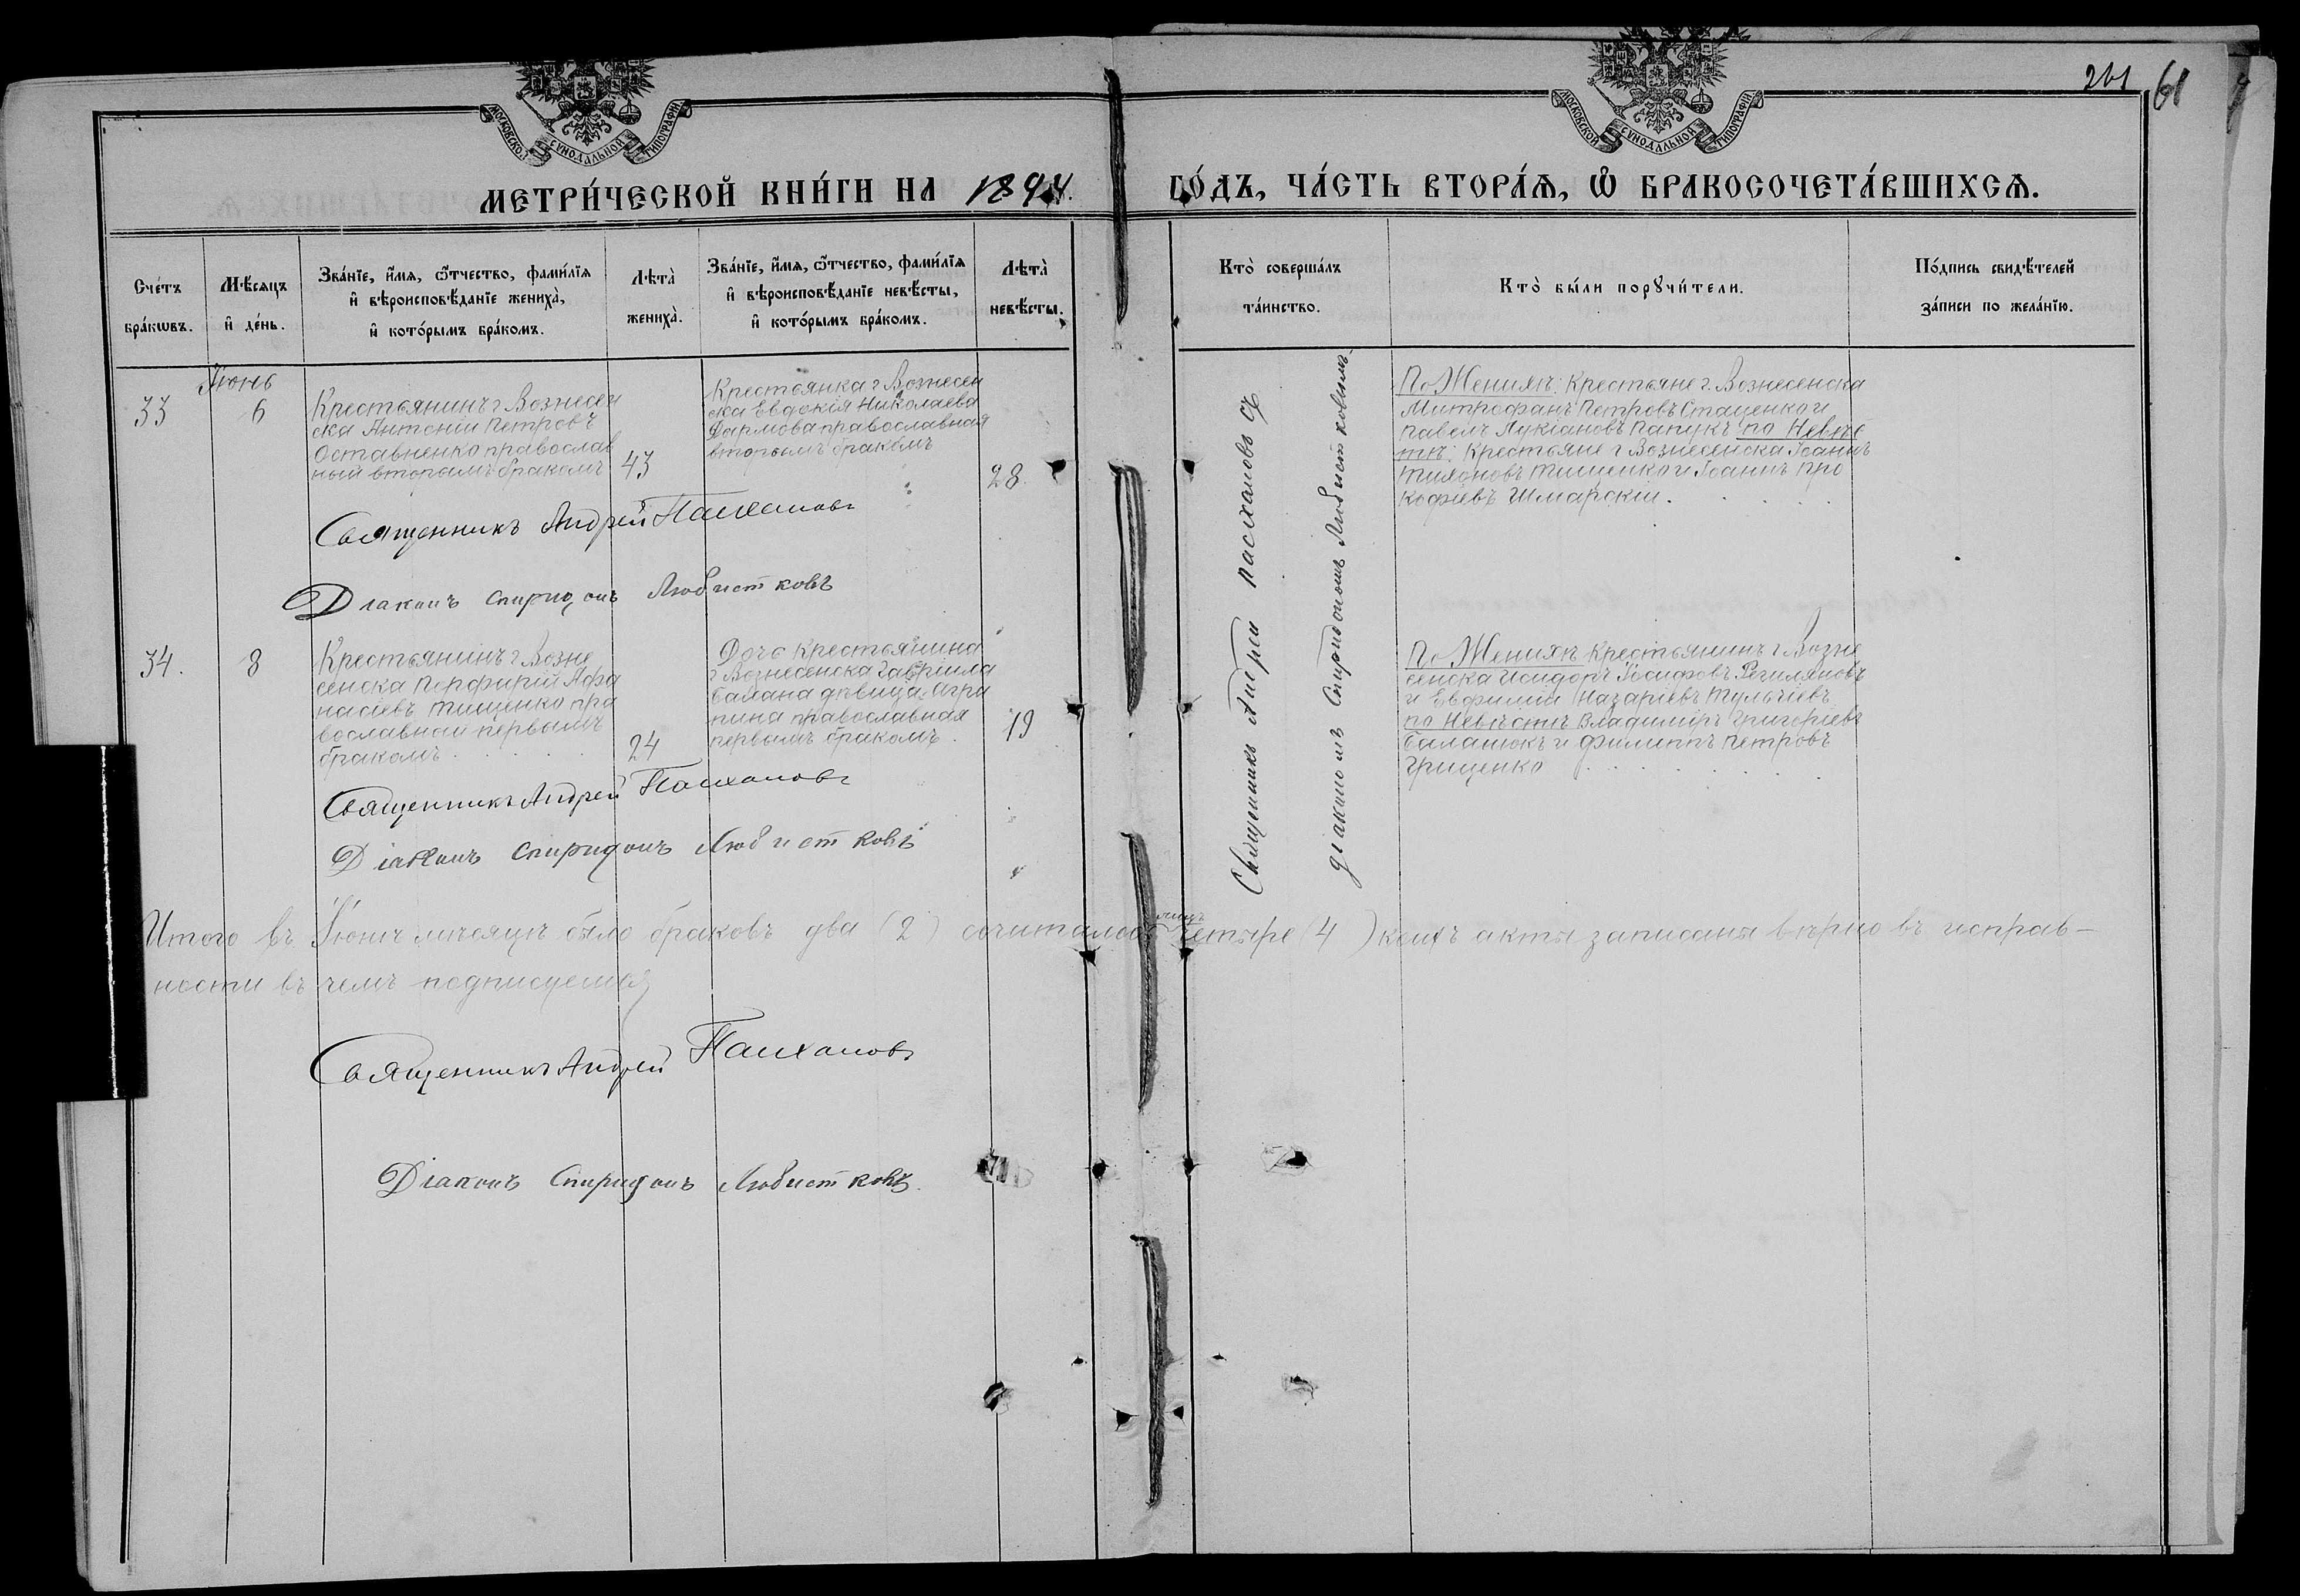 МОСКОВСКОЙ СѴНОДАЛЬНОЙ ТИПОГРАФІИ
МОСКОВСКОЙ СѴНОДАЛЬНОЙ ТИПОГРАФІИ
261 61
МЕТРИ́ЧЕСКОЙ КНИ́ГИ НА 1894 ГО́ДЪ, ЧА́СТЬ ВТОРА́Ѧ, Ѡ҆ БРАКОСОЧЕТА́ВШИХСѦ.
Сче́тъ
бра́кѡвъ.
Мѣ́сѧцъ
и҆ де́нь.
Зва́нїе, и҆́мѧ, ѻ҆́тчество, фами́лїѧ
и҆ вѣроисповѣ́данїе жениха̀,
и҆ кото́рымъ бра́комъ.
Лѣта̀
жениха̀.
Зва́нїе, и҆́мѧ, ѻ҆́тчество, фами́лїѧ
и҆ вѣроисповѣ́данїе невѣ́сты,
и҆ кото́рымъ бра́комъ.
Лѣта̀
невѣ́сты.
Кто̀ соверша́лъ
та́инство.
Кто̀ бы́ли порꙋчи́тели.
По́дпись свидѣ́телей
за́писи по жела́нїю.
Іюнь
33
6
Крестьянинъ г Вознесен
ска Антоній Петровъ
Оставненко православ
ный вторымъ бракомъ
43
Крестьянка г Вознесен
ска Евдокія Николаева
православная
вторымъ бракомъ
28
Священникъ Андрей
Діаконъ Спиридонъ Любистковъ
Священникъ Андрей съ
діакономъ Спиридономъ Любистковымъ
По Женихѣ: Крестьяне г. Вознесенска
Митрофанъ Петровъ Стаценко и
Павелъ Лукіановъ Папукъ по Невѣс
тѣ: Крестьяне г Вознесенска Іоаннъ
Тихоновъ Тищенко и Іоаннъ Про
кофіевъ Шмарскій.
34.
8
Крестьянинъ г Возне
сенска Порфирій Афа
насіевъ Тищенко пра
вославный первымъ
бракомъ
24
Дочь Крестьянина
г Вознесенска Гавріила
Балана дѣвица Агри
пина православная
первымъ бракомъ.
19
По Женихѣ Крестьянинъ г Возне
сенска Исидоръ Іосифовъ
и Евфимій Назаріевъ
по Невѣстѣ Владиміръ Григоріевъ
Баланюкъ и Филиппъ Петровъ
Грищенко
Священникъ Андрей
Діаконъ Спиридонъ Любистковъ
Итого въ Іюнѣ мѣсяцѣ было браковъ два (2) сочиталось лицъ четыре (4) коихъ акты записаны вѣрно въ исправ-
ности въ чемъ подписуемся
Священникъ Андрей
Діаконъ Спиридонъ Любистковъ.